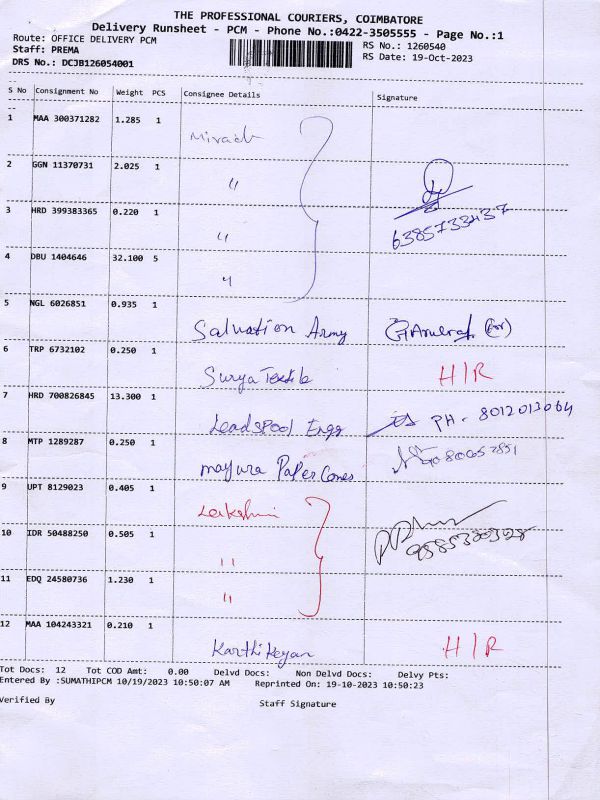 THE PROFESSIONAL COURIERS, COIMBATORE
Delivery Runsheet - PCM - Phone No.:0422-3505555 - Page No.:1
Route: OFFICE DELIVERY PCM RS No.: 1260540
Staff: PREMA RS Date: 19-Oct-2023
DRS No.: DCJB126054001
S No Consignment No Weight PCS Consignee Details Signature
1 MAA 300371282 1.285 1
2 GGN 11370731 2.025 1 "
3 HRD 399383365 0.220 1 " 6385733437
4 DBU 1404646 32.100 5 "
5 NGL 6026851 0.935 1 Salvation Army
6 TRP 6732102 0.250 1 Surya Textile H/R
7 HRD 700826845 13.300 1 Leadspool Engg PH - 8012013064
8 MTP 1289287 0.250 1 mayura Paper Cones
9 UPT 8129023 0.405 1 Lakshmi
10 IDR 50488250 0.505 1 "
11 EDQ 24580736 1.230 1 "
12 MAA 104243321 0.210 1 Karthikeyan H/R
Tot Docs: 12 Tot COD Amt: 0.00 Delvd Docs: Non Delvd Docs: Delvy Pts:
Entered By :SUMATHIPCM 10/19/2023 10:50:07 AM Reprinted On: 19-10-2023 10:50:23
Verified By Staff Signature